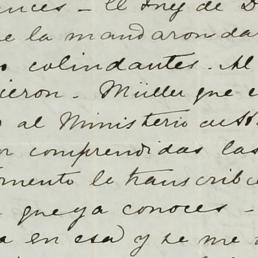 ences - El Ing de D
e la mandaron da
o colindantes. Al
ieron. - Müller que e
o al Ministerio de
or comprendidas las
mento le transcrib
- que ya conoces -
a en esa) y se me